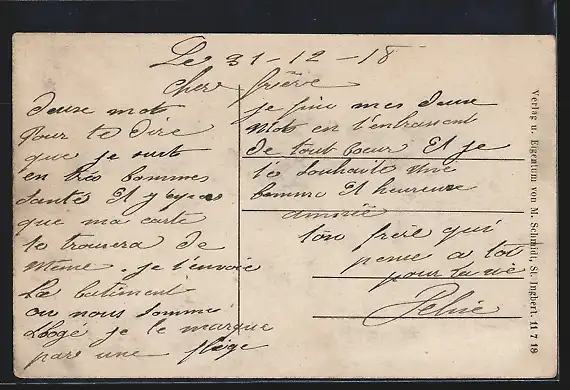 Le 31-12-18
cher frière
deuse mots
pour te dire
que je suit
en très bonnes
santés Et j'espere
que ma carte
te trousera de
même. je t'envoie
Le batiment
ou nous somme
Logé je te marque
pare une flège
je fini mes deuse
Mots en t'enbrasent
de tout Coeur Et je
te souhaite une
bonne Et heureuse
année
ton frère qui
pense a toi
pour la vie
Verlag u. Eigentum von M. Schmidt, St. Ingbert. 11 7 18